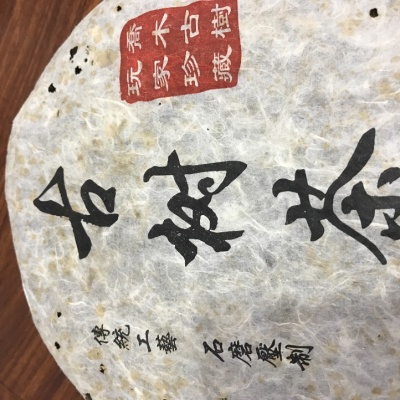 喬木古樹
玩家珍藏
古树茶
傳統工藝 石磨壓制